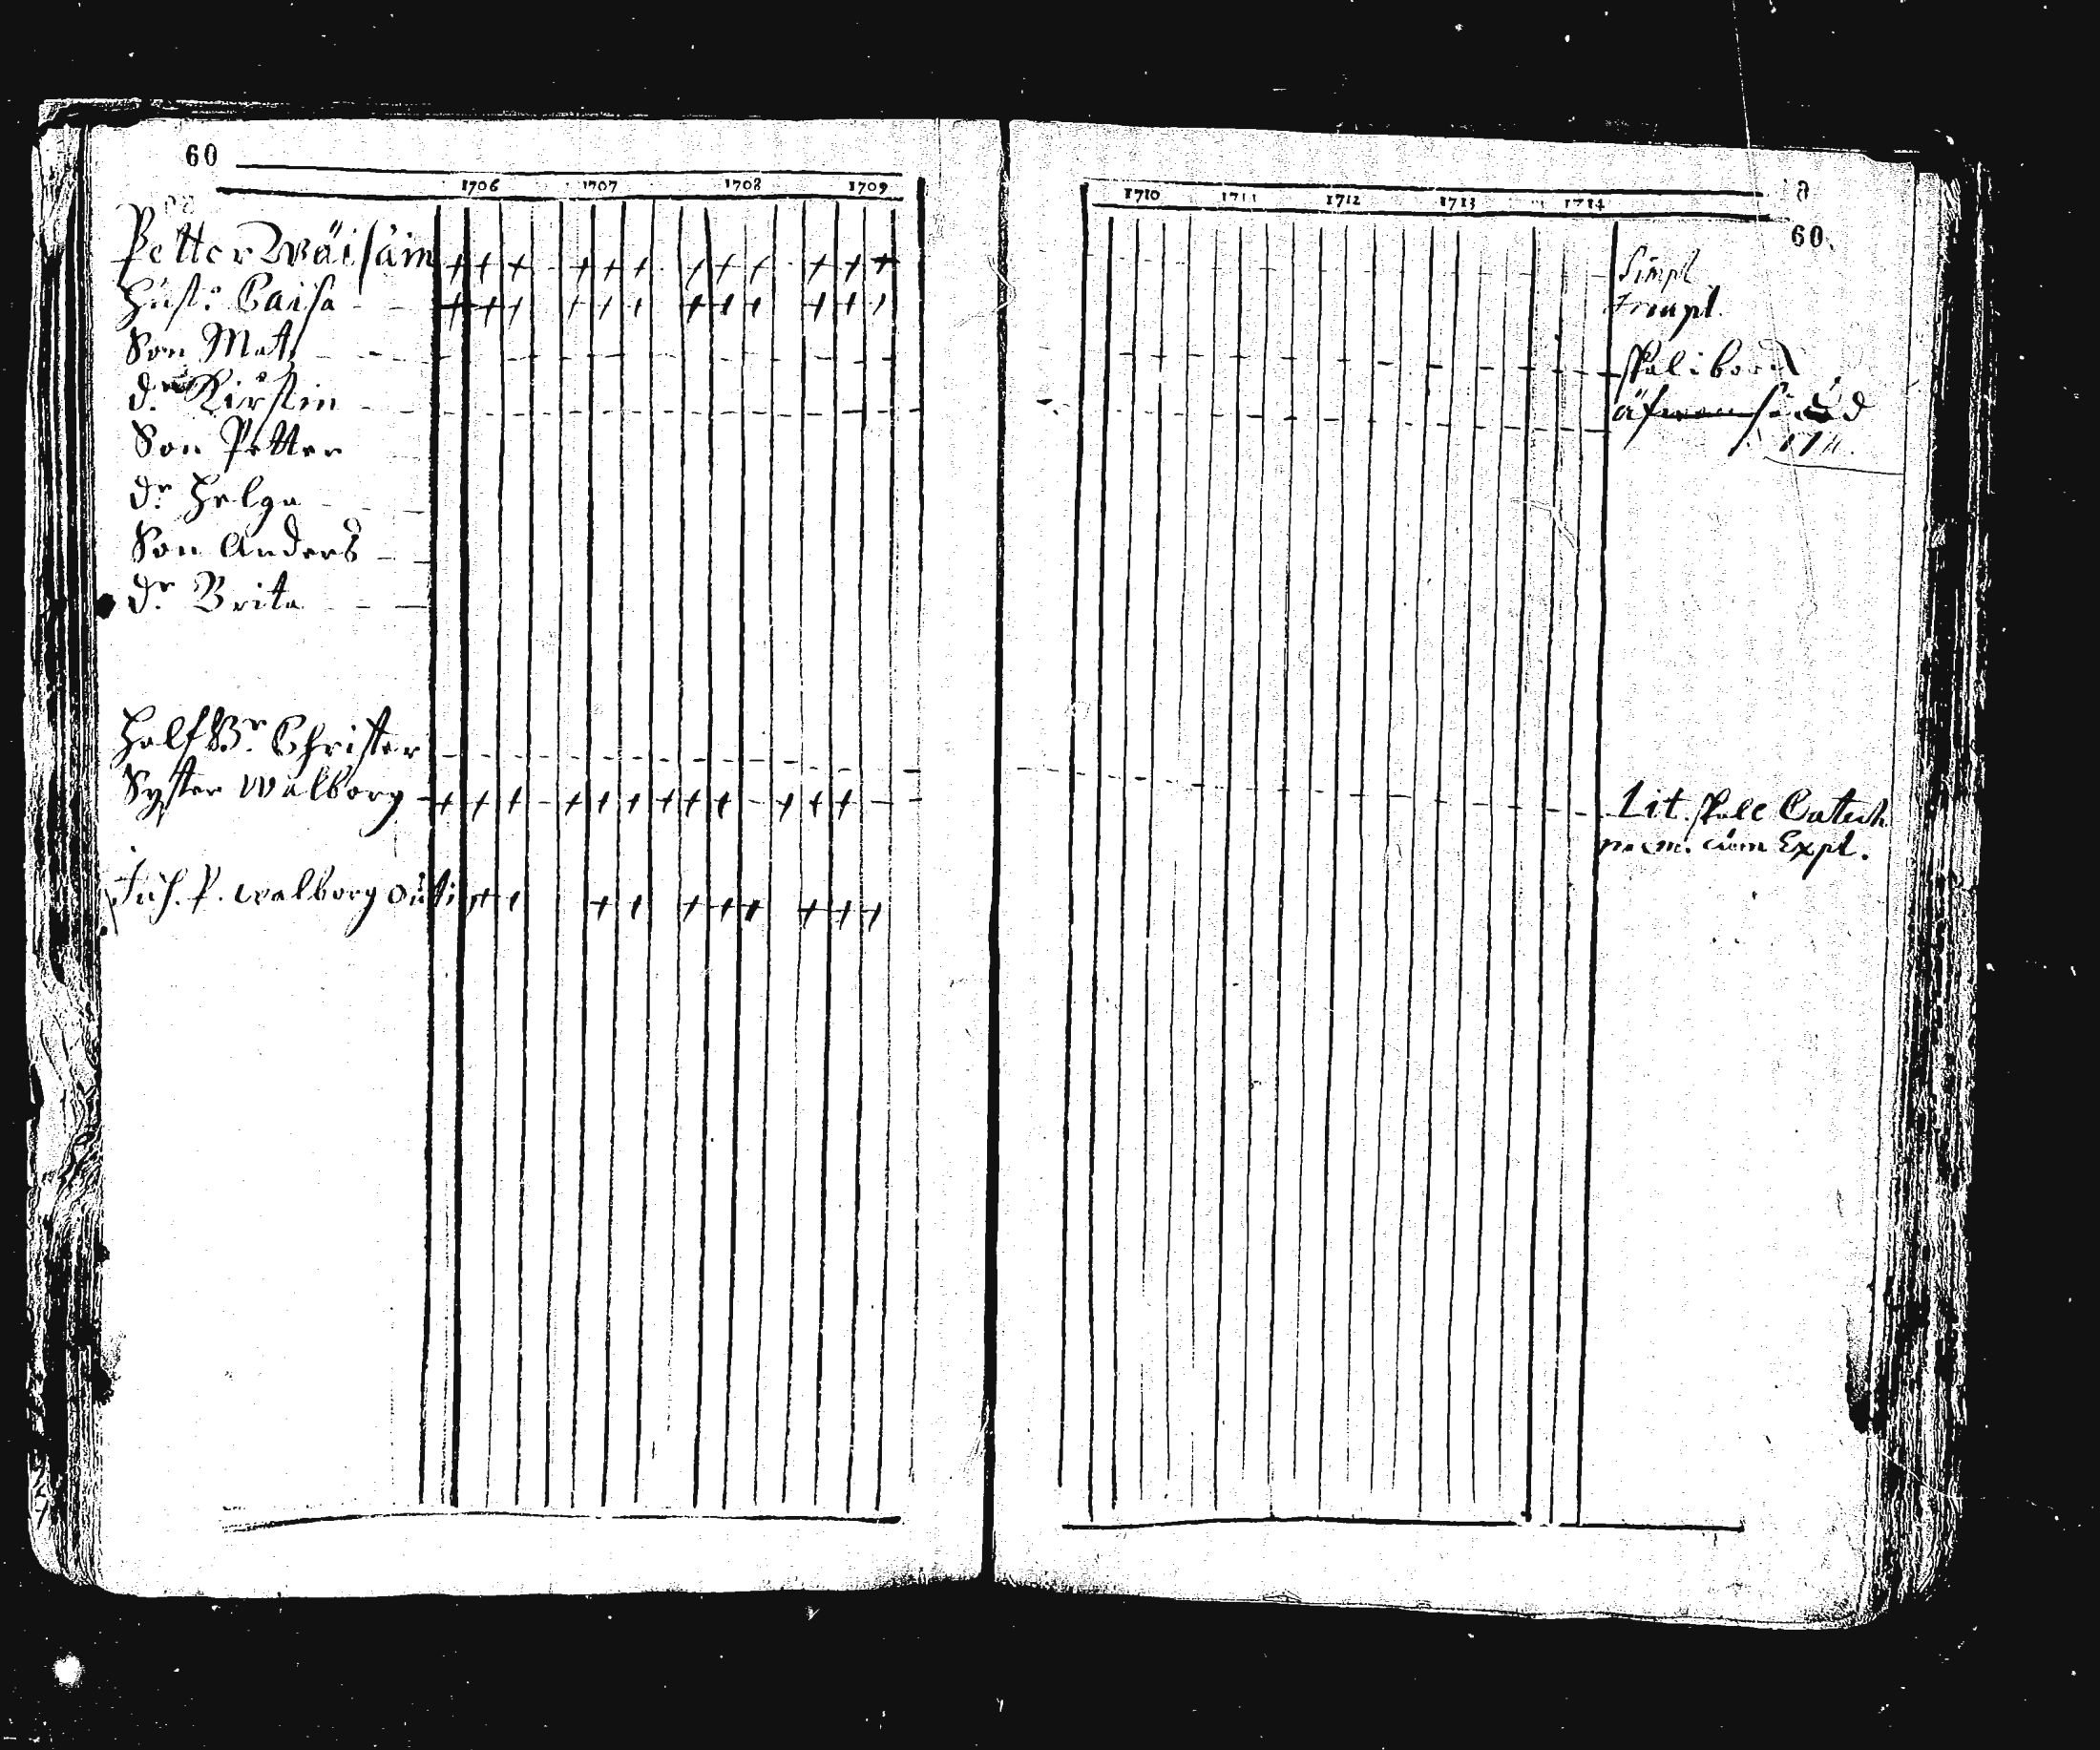 60
1706 1707 1708 1709
Petter Wäisäin
Hust: Caisa
Son Mats
dr Kirstin
Son Petter
dr Helga
Son Anders
dr Brita
HalfBr Christer
Syster Walborg
Inh. P. walborg
1710 1711 1712 1713 1714
60
Simpl
Simpl.
Lit. Catech
cum Expl.